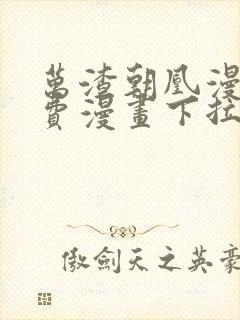 萬渣朝凰漫
費漫畫下拉
傲劍天之英豪